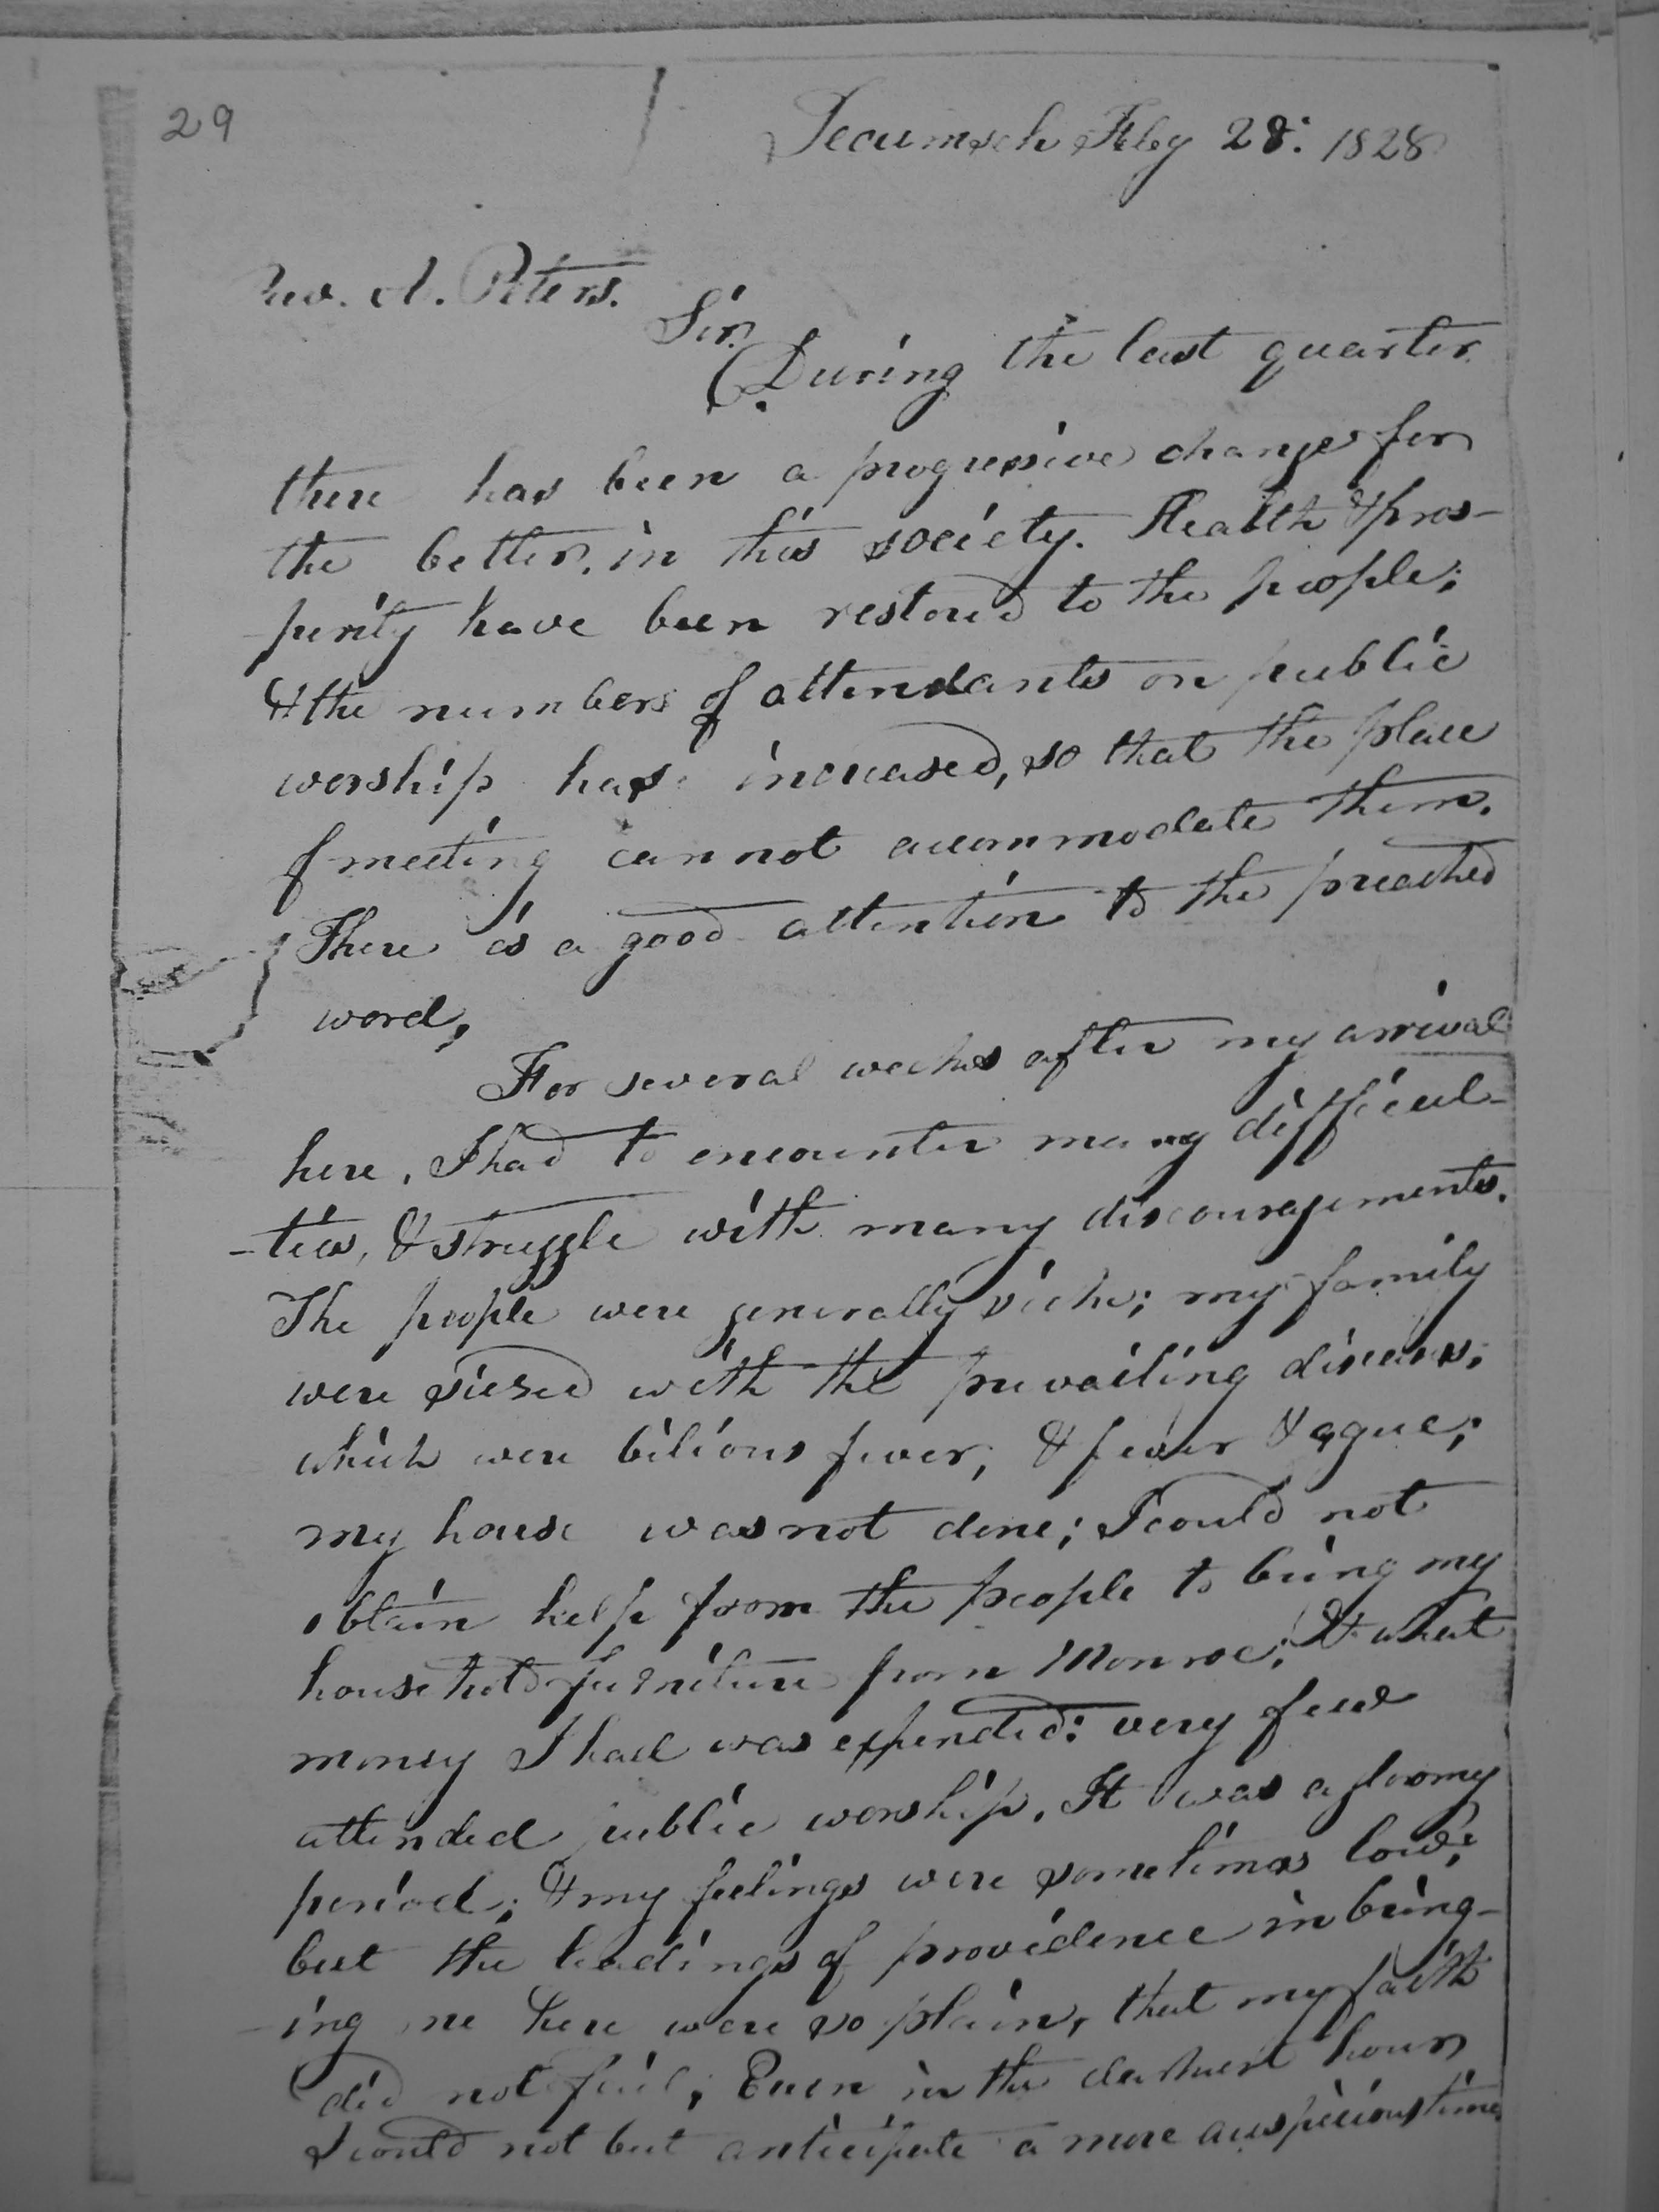 29
Tecumseh Feby 28: 1828
Rev. A. Peters.
Sir.
During the last quarter
there has been a progressive change for
the better, in this society. Health & pros-
perity have been restored to the people;
& the numbers of attendants on public
worship has increased, so that the place
of meeting cannot accommodate them.
There is a good attention to the preached
word,
For several weeks after my arrival
here, I had to encounter many difficul-
-ties, & struggle with many discouragements.
The people were generally sick; my family
were siesed with the prevailing diseases,
which were bilious fever, & fever & ague;
my house was not done; I could not
obtain help from the people to bring my
household furniture from Monroe; & what
money I had was expended: very few
attended public worship. It was a gloomy
period; & my feelings were sometimes low;
but the leadings of providence in bring-
-ing me here were so plain, that my faith
did not fail; Even in the darkest hour
I could not but anticipate a more auspicious time